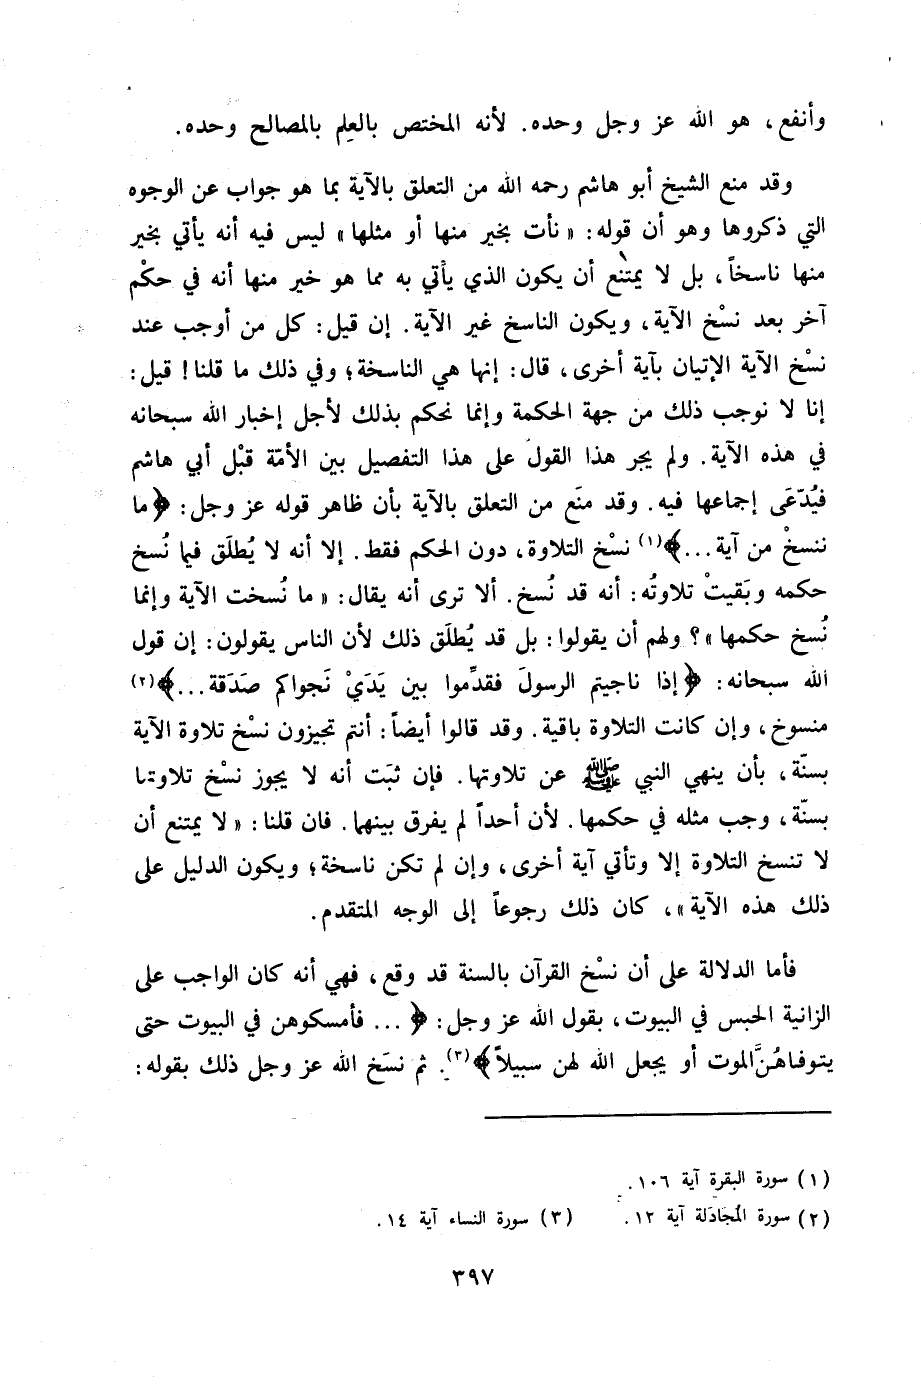 وأنفع، هو الله عز وجل وحده. لأنه المختص بالعِلم بالمصالح وحده.
وقد منع الشيخ أبو هاشم رحمه الله من التعلق بالآية بما هو جواب عن الوجوه
التي ذكروها وهو أن قوله: « نأت بخير منها أو مثلها » ليس فيه أنه يأتي بخير
منها ناسخاً، بل لا يمتنع أن يكون الذي يأتي به مما هو خير منها أنه في حكْم
آخر بعد نسْخ الآية، ويكون الناسخ غير الآية. إن قيل: كل من أوجب عند
نسْخ الآية الإتيان بآية أخرى، قال: إنها هي الناسخة؛ وفي ذلك ما قلنا! قيل:
إنا لا نوجب ذلك من جهة الحكمة وإنما نحكم بذلك لأجل إخبار الله سبحانه
في هذه الآية. ولم يجر هذا القول على هذا التفصيل بين الأمّة قبْل أبي هاشم
فيُدّعَى إجماعها فيه. وقد منَع من التعلق بالآية بأن ظاهر قوله عز وجل: ﴿ ما
ننسخْ من آية...﴾(١) نسْخ التلاوة، دون الحكم فقط. إلا أنه لا يُطلَق فيما نُسخ
حكمه وبَقيتْ تلاوتُه: أنه قد نُسخ. ألا ترى أنه يقال: « ما نُسخت الآية وإنما
نُسخ حكمها »؟ ولهم أن يقولوا: بل قد يُطلَق ذلك لأن الناس يقولون: إن قول
الله سبحانه: ﴿ إذا ناجيتم الرسولَ فقدِّموا بين يَدَيْ نَجواكم صَدَقة...﴾(٢)
منسوخ، وإن كانت التلاوة باقية. وقد قالوا أيضاً: أنتم تجيزون نسْخ تلاوة الآية
بسنّة، بأن ينهي النبي ﷺ عن تلاوتها. فإن ثبَت أنه لا يجوز نسْخ تلاوتها
بسنّة، وجب مثله في حكمها. لأن أحداً لم يفرق بينهما. فان قلنا: « لا يمتنع أن
لا تنسخ التلاوة إلا وتأتي آية أخرى، وإن لم تكن ناسخة؛ ويكون الدليل على
ذلك هذه الآية »، كان ذلك رجوعاً إلى الوجه المتقدم.
فأما الدلالة على أن نسْخ القرآن بالسنة قد وقع، فهي أنه كان الواجب على
الزانية الحبس في البيوت، بقول الله عز وجل: ﴿ ... فأمسكوهن في البيوت حتى
يتوفاهُنَّ الموت أو يجعل الله لهن سبيلاً ﴾(٣). ثم نسَخ الله عز وجل ذلك بقوله:
(١) سورة البقرة آية ١٠٦.
(٢) سورة المُجادَلة آية ١٢. (٣) سورة النساء آية ١٤.
٣٩٧